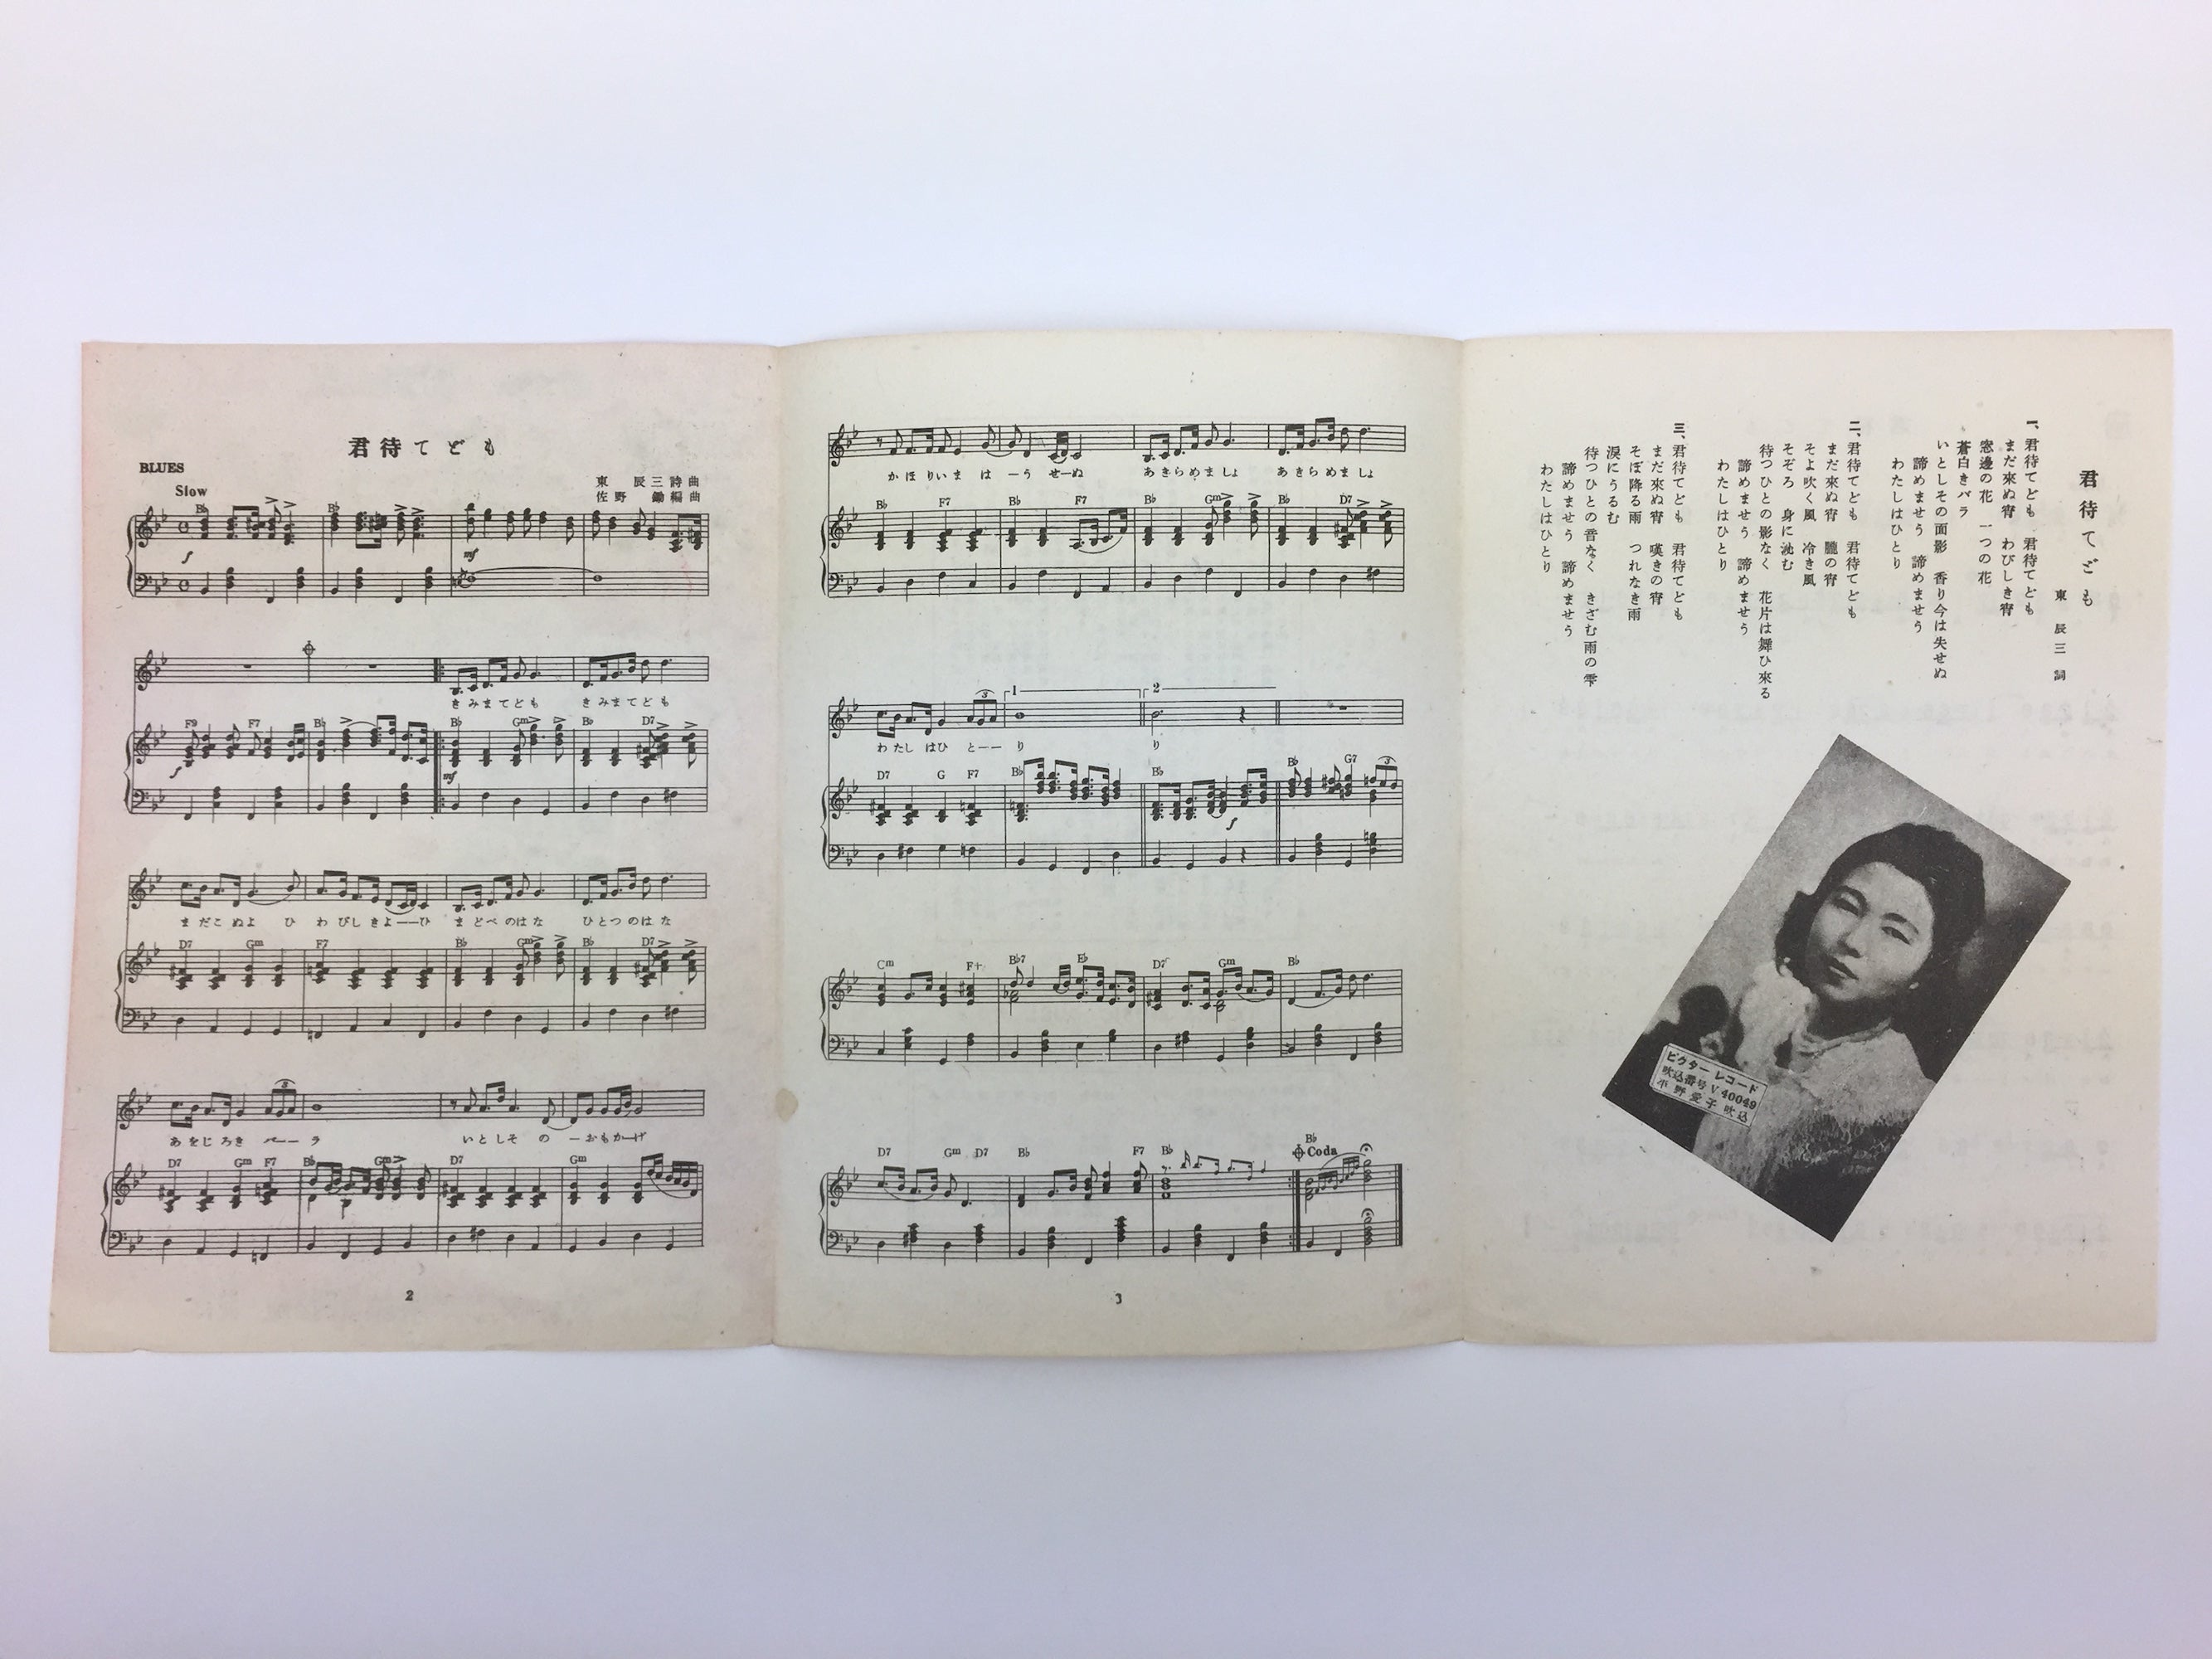 君待てども
BLUES
Slow
東 辰三 詩曲
佐野 鋤 編曲
B♭ B♭
f mf
きみまてども きみまてども
F9 F7 B♭ B♭ Gm B♭ D7
f mf
まだこぬよ ひ わびしきよーーひ まどべのはな ひとつのはな
D7 Gm F7 B♭ Gm B♭ D7
3
あをじろき バーーラ いとしそ の ーおもかーげ
D7 Gm F7 B♭ Gm D7 Gm
2
かほりいま はーうせーぬ あきらめましょ あきらめましょ
B♭ F7 B♭ F7 B♭ Gm B♭ D7
3 1 2
わたしはひ とーー り り
D7 G F7 B♭ B♭ B♭ G7 3
f
Cm F+ B♭7 E♭ D7 Gm B♭
D7 Gm D7 B♭ F7 B♭ B♭
Coda
3
君待てども
東 辰三 詞
一、君待てども 君待てども
まだ來ぬ宵 わびしき宵
窓邊の花 一つの花
蒼白きバラ
いとしその面影 香り今は失せぬ
諦めませう 諦めませう
わたしはひとり
二、君待てども 君待てども
まだ來ぬ宵 朧の宵
そよ吹く風 冷き風
そぞろ 身に沁む
待つひとの影なく 花片は舞ひ來る
諦めませう 諦めませう
わたしはひとり
三、君待てども 君待てども
まだ來ぬ宵 嘆きの宵
そぼ降る雨 つれなき雨
涙にうるむ
待つひとの音なく きざむ雨の雫
諦めませう 諦めませう
わたしはひとり
ビクター レコード
吹込番号 V.40049
平野愛子 吹込